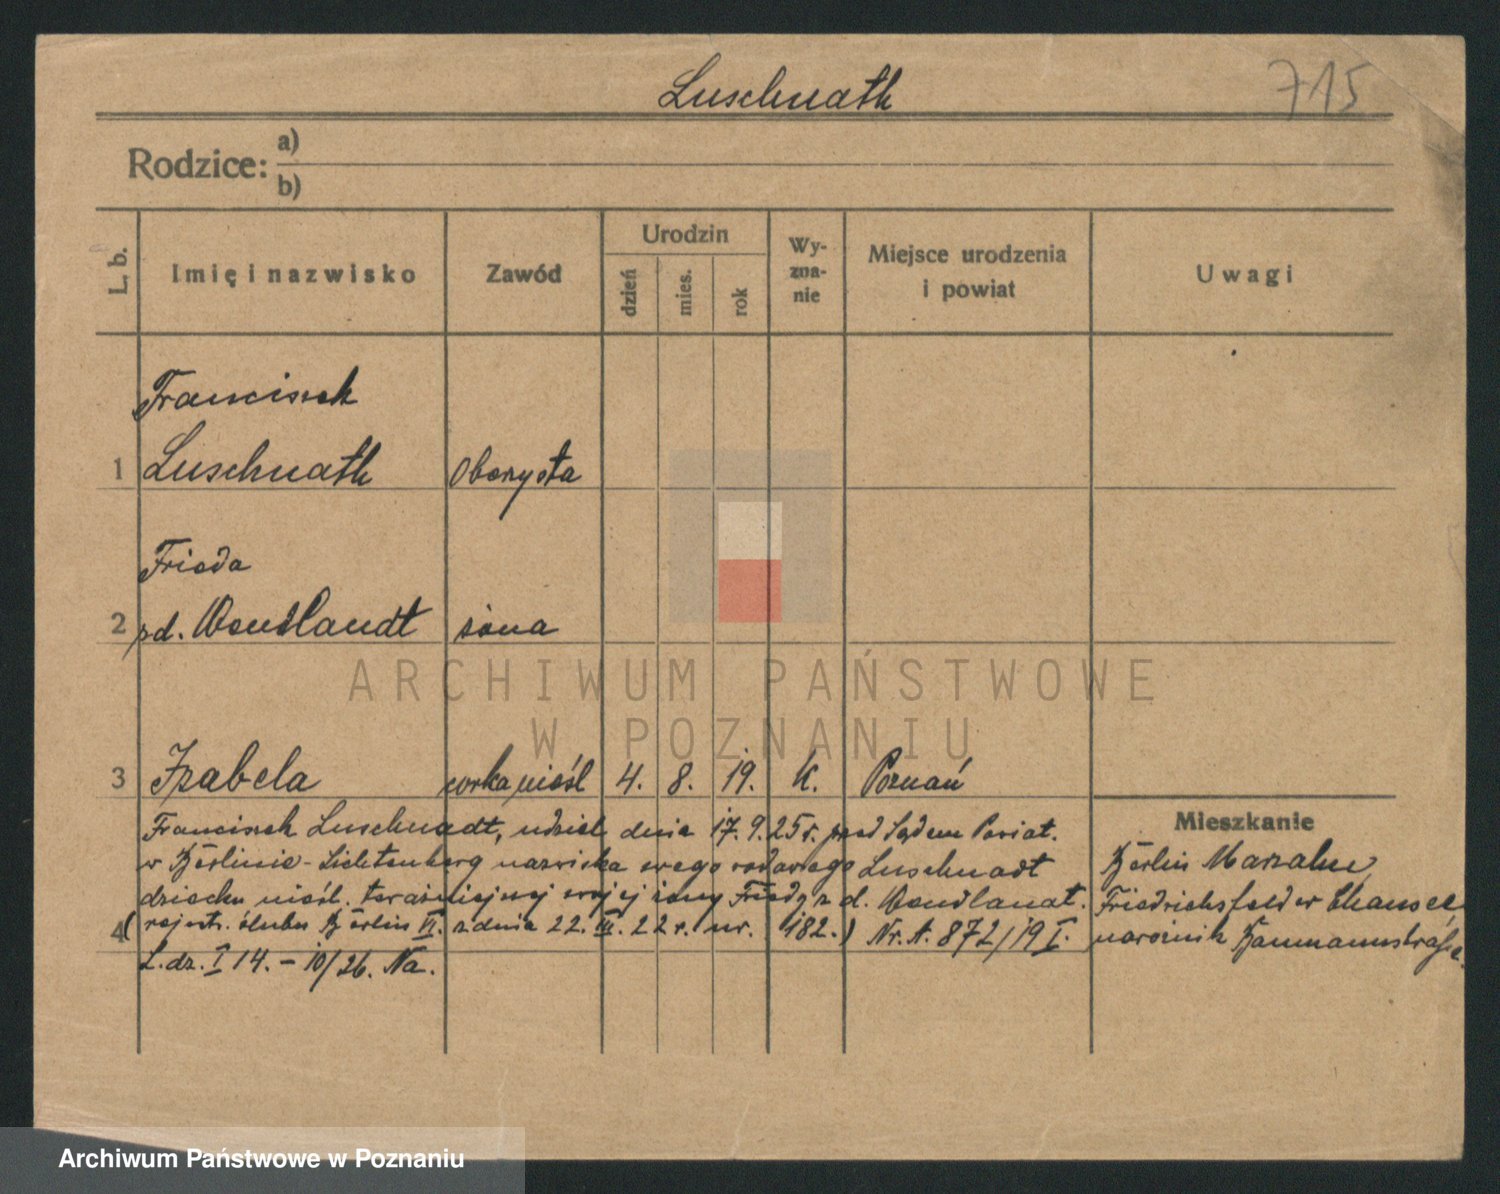 Luschnath
715
Rodzice: a)
b)
L. b.
Imię i nazwisko
Zawód
Urodzin
dzień
mies.
rok
Wy-
zna-
nie
Miejsce urodzenia
i powiat
Uwagi
Franciszek
1 Luschnath Oberzysta
Frieda
2 zd. Wendlandt żona
3 Izabela córka nieśl 4. 8. 19. K. Poznań
Franciszek Luschnadt, udziel dnia 17.9.25 r. przed Sądem Powiat.
w Berlinie-Lichtenberg nazwiska swego rodowego Luschnadt
dziecku nieśl. terażniejszej swojej żony Friedy z d. Wendlanat.
4 (rejestr. ślubu Berlin VI. z dnia 22. 22 r. nr. 182.) Nr. A. 872/19 I.
L. dz. I 14. - 10/26. Na.
Mieszkanie
Berlin Marzahn
Friedrichsfelder Chaussee
narożnik Baumannstraße.
ARCHIWUM PAŃSTWOWE
W POZNANIU
Archiwum Państwowe w Poznaniu